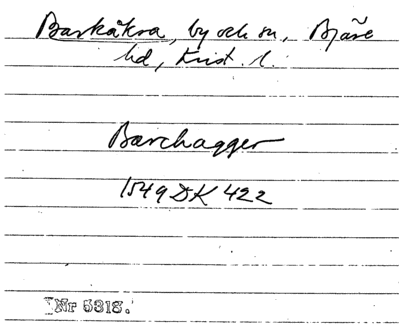 Barkåkra, by och sn, Bjäre
hd, Krist. l.
Barchagger
1549 DK 422
Nr 5318.